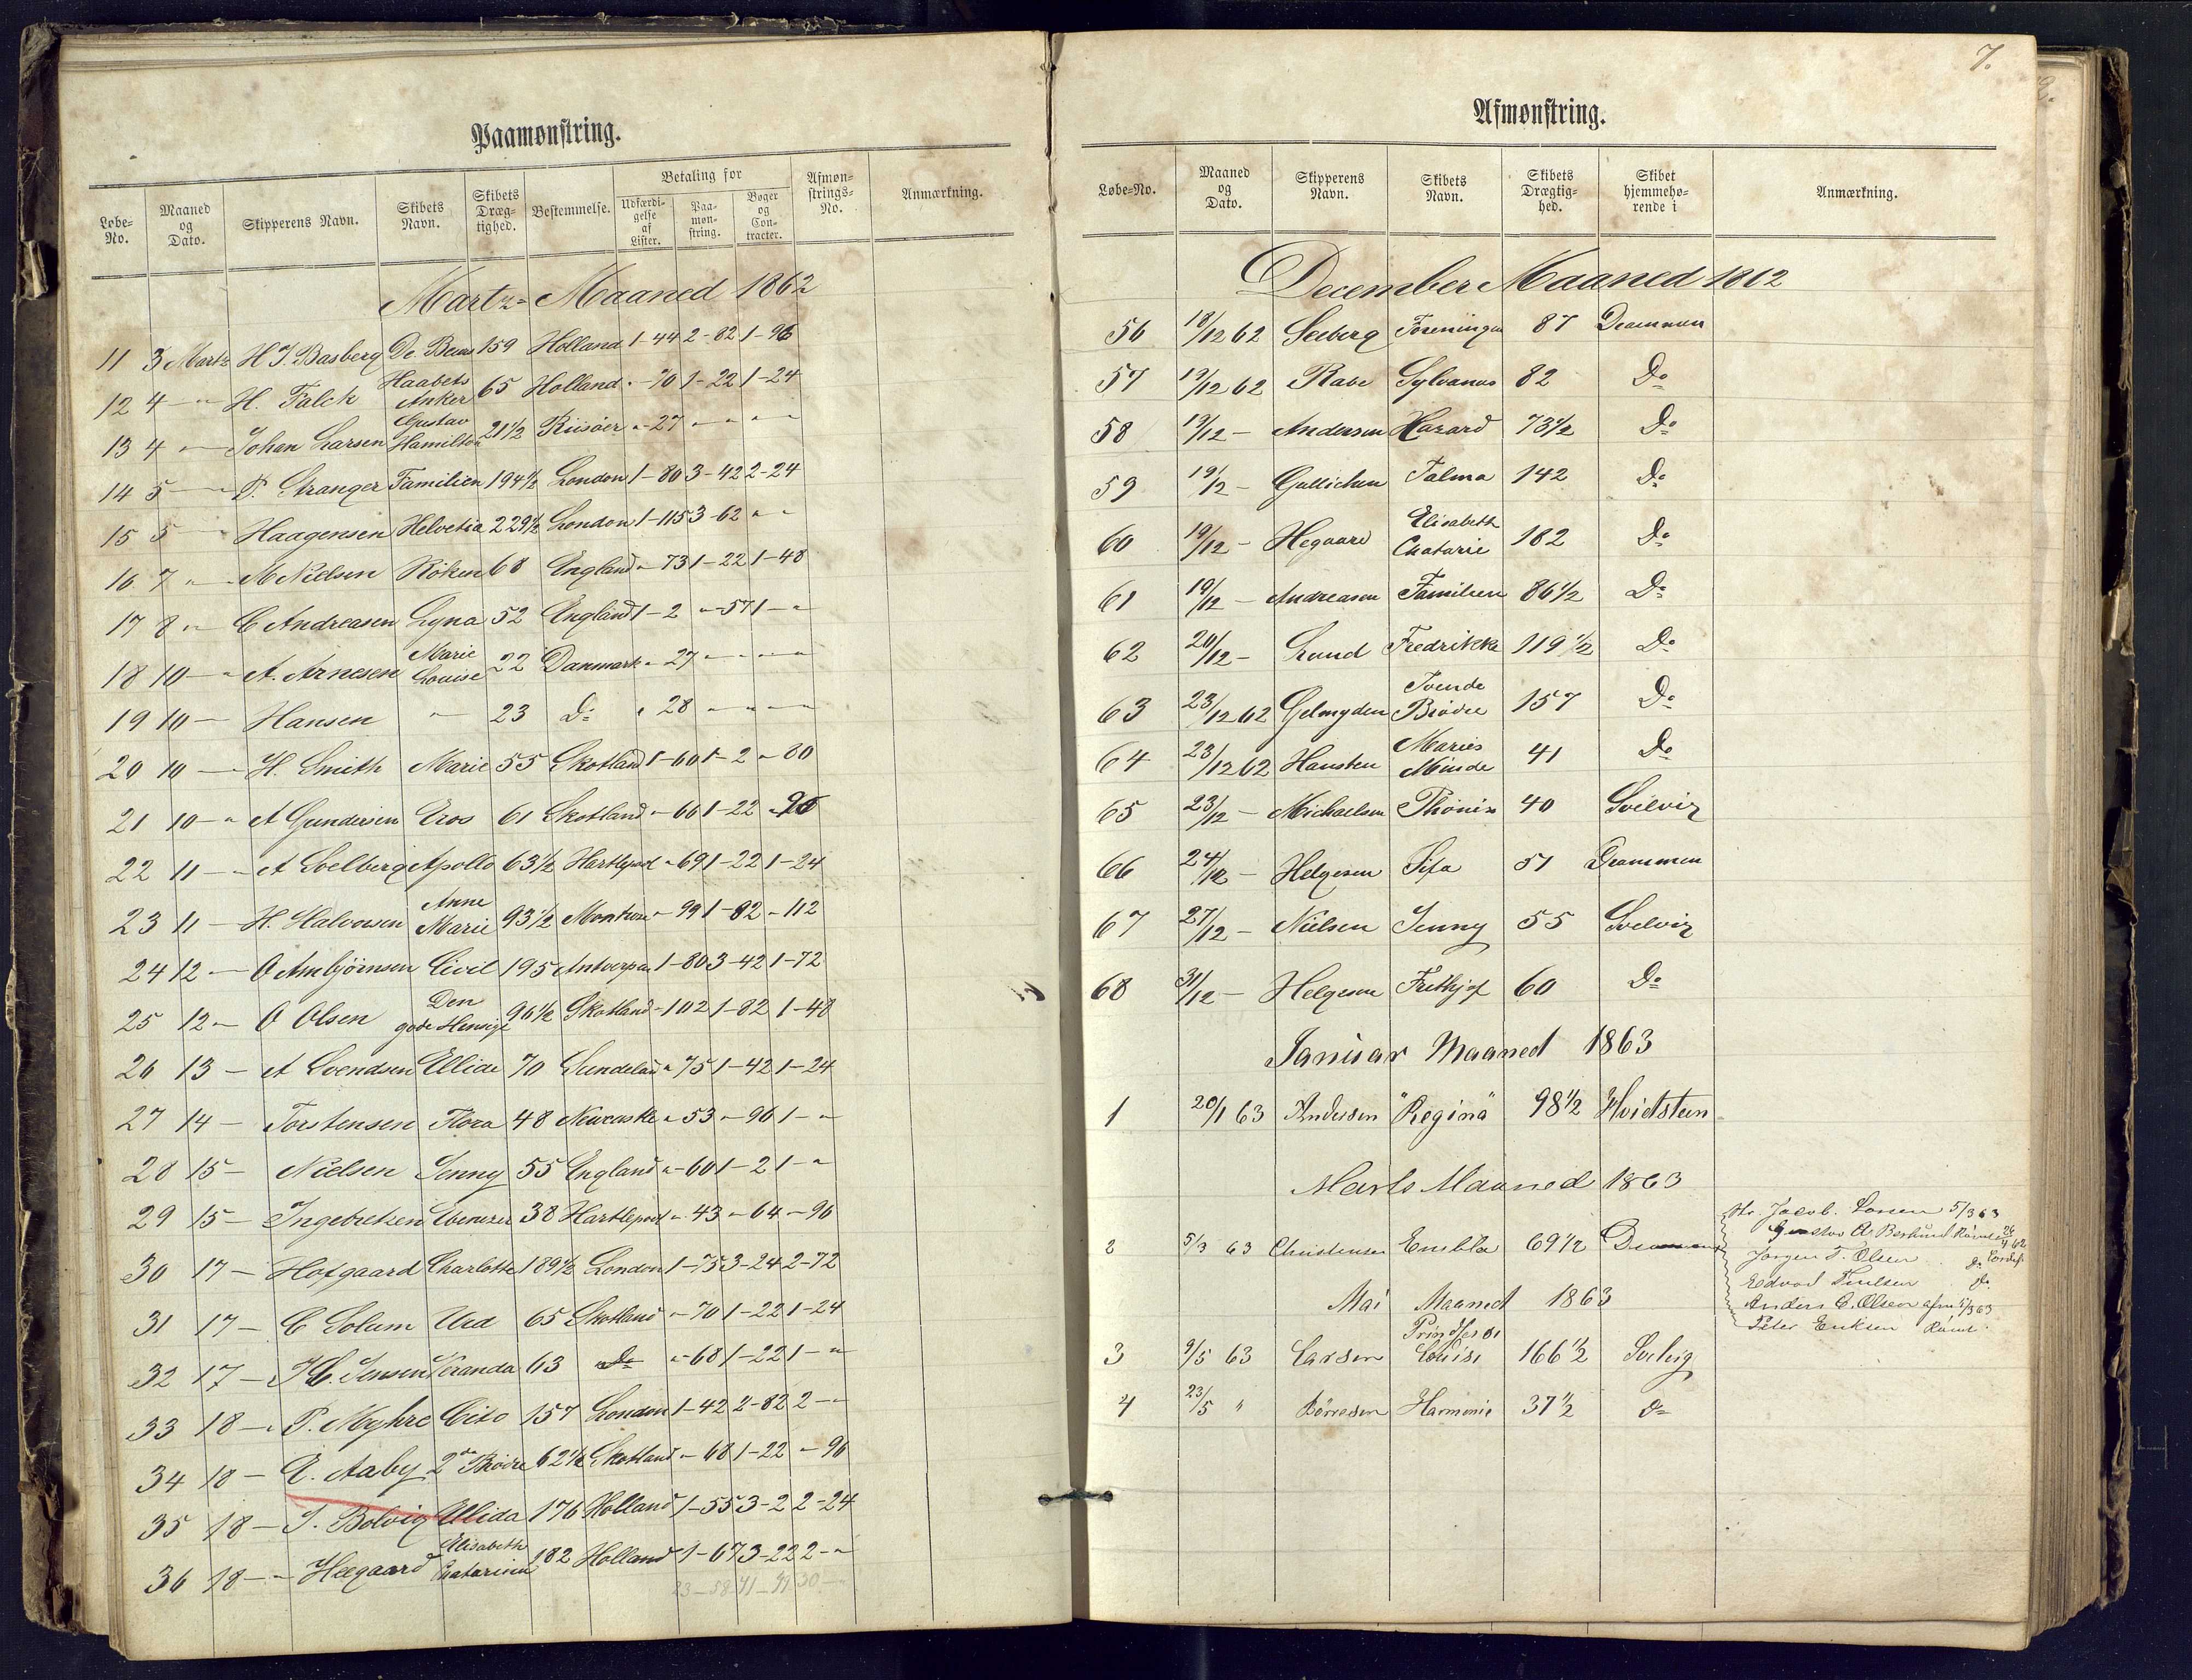 Paamønstring.
Løbe-No. | Maaned og Dato. | Skipperens Navn. | Skibets Navn. | Skibets Dræg-tighed. | Bestemmelse. | Betaling for | Udfærdi-gelse af Lister. | Paa-møn-string. | Bøger og Con-tracter. | Afmøn-strings-No. | Anmærkning.
Martz Maaned 1862
11 3 Martz H J Basberg De 159 Holland 1-44 2-82 1-96
12 4 " H. Falck Haabets Anker 65 Holland "-70 1-22 1-24
13 4 " Johan Larsen Gustav Hamilton 21½ Riisöer "-27 " "
14 5 " P. Stranger Familien 194½ London 1-80 3-42 2-24
15 5 Haagensen Helvetia 229½ London 1-115 3-62 " "
16 7 " M Nielsen Röken 68 England "-73 1-22 1-48
17 8 " C Andreasen Lyna 52 England 1-2 "-57 1-"
18 10 " A. Arnesen Marie Louise 22 Danmark "-27 " "
19 10 Hansen " 23 Do " 28 " "
20 10 " H. Smith Marie 55 Skotland 1-60 1-2 "-80
21 10 " A Gundersen Eros 61 Skotland "-66 1-22 "-96
22 11 " A Soelberg Apollo 63½ Hartlepool "-69 1-22 1-24
23 11 - H. Halvorsen Anne Marie 93½ Montrose "-99 1-82 "-112
24 12 - O Ambjörnsen Civil 195 Antverpen 1-80 3-42 1-72
25 12 " O Olsen Den gode Hensigt 96½ Skotland "-102 1-82 1-48
26 13 - A Svendsen Ellida 70 Sundeland "-75 1-42 1-24
27 14 - Torstensen Flora 48 Newcastle "-53 "-96 1-"
28 15 - Nielsen Jenny 55 England "-60 1-2 1-"
29 15 - Ingebretsen Ebenezer 38 Hartlepool "-43 "-64 "-96
30 17 - Hofgaard Charlotte 189½ London 1-75 3-24 2-72
31 17 - C Solum Urd 65 Skotland "-70 1-22 1-24
32 17 - H C. Jensen Veranda 63 Do "-68 1-22 1-"
33 18 - P. Myhre Cito 157 London 1-42 2-82 2-"
34 18 - E. Aaby 2de Brödre 62½ Skotland "-68 1-22 "-96
35 18 - S. Bolvig Ellida 176 Holland 1-55 3-2 2-24
36 18 - Heegaard Elisabeth Catarina 182 Holland 1-67 3-22 2-"
7.
Afmønstring.
Løbe-No. | Maaned og Dato. | Skipperens Navn. | Skibets Navn. | Skibets Drægtig-hed. | Skibet hjemmehø-rende i | Anmærkning.
December Maaned 1862
56 18/12 62 Seeberg Foreningen 87 Drammen
57 19/12 62 Rave Sylvanus 82 Do
58 19/12 - Andersen Hazard 73½ Do
59 19/12 - Gullichsen Talma 142 Do
60 19/12 - Hegaard Elisabeth Catarie 182 Do
61 19/12 - Andreasen Familien 86½ Do
62 20/12 - Lund Fredrikka 119½ Do
63 23/12 62 Gelmyden Tvende Brödre 157 Do
64 23/12 62 Hansten Maries Minde 41 Do
65 23/12 - Michaelsen Phönix 40 Svelvig
66 24/12 - Helgesen Sifa 51 Drammen
67 27/12 - Nielsen Jenny 55 Svelvig
68 31/12 - Helgesen Frithjof 60 Do
Januar Maaned 1863
1 20/1 63 Andersen "Regina" 98½ Hvidsteen
Marts Maaned 1863
2 5/3 63 Christensen Embla 69½ Drammen
Jacob Larsen 5/3 63
Gustav A
Jörgen T. Olsen do
Edvard do
Anders C. Olsen afm 5/3 63
Peter Eriksen
Mai Maaned 1863
3 9/5 63 Larsen Prindsesse Louise 166½ Svelvig
4 23/5 " Börresen Harmonie 37½ do